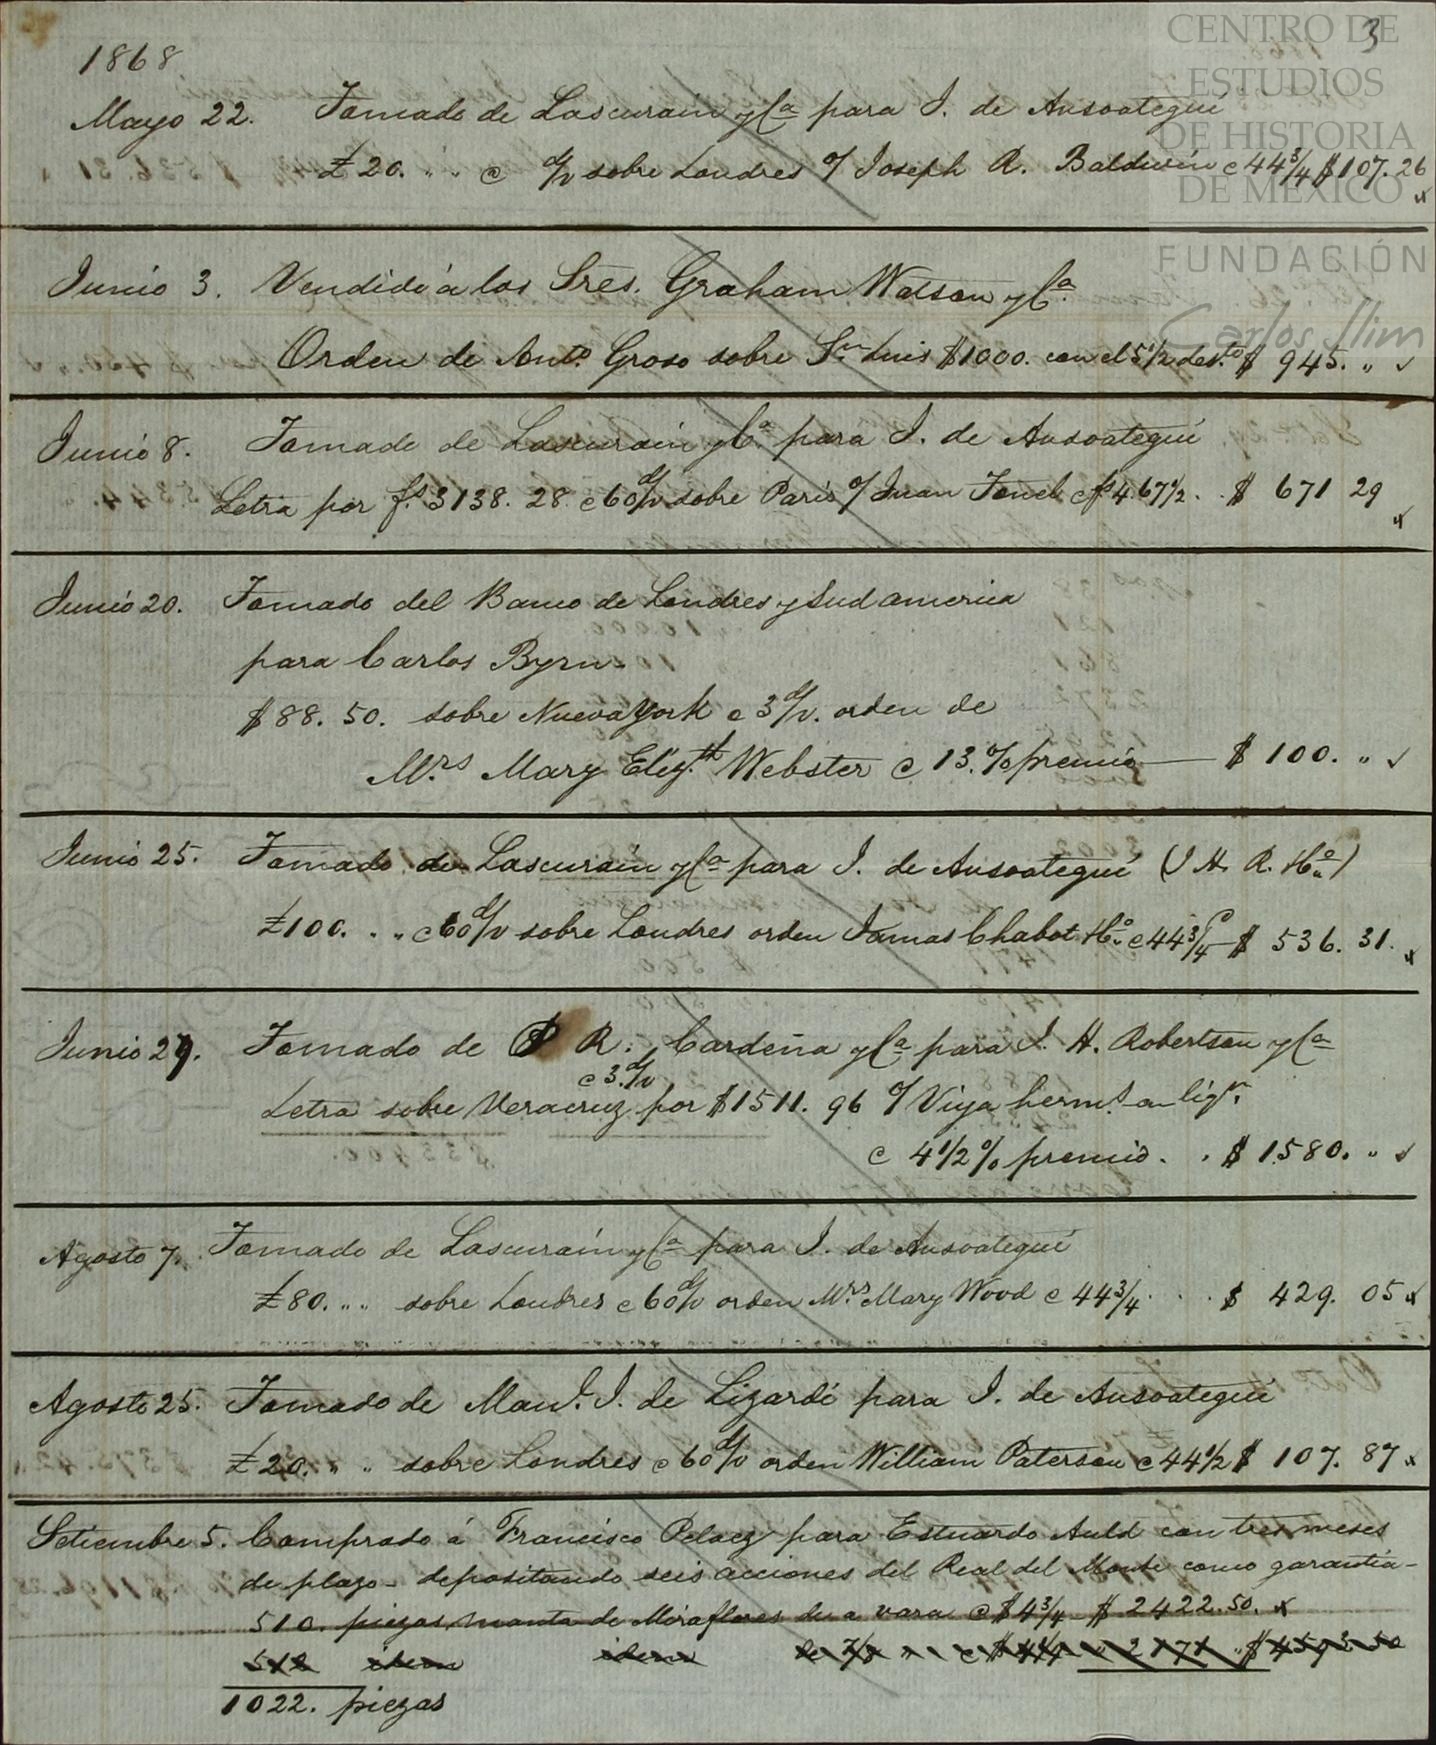 3
CENTRO DE
ESTUDIOS
DE HISTORIA
DE MÉXICO
FUNDACIÓN
Carlos Slim
1868
Mayo 22. Tomado de Lascurain y Ca para I. de Ansoategui
£ 20. " " c d/v sobre Londres o/ Joseph R. Baldwin c 44 3/4 $ 107. 26
Junio 3. Vendido á los Sres. Graham Watson y Ca
Orden de Anto Groso sobre Sn Luis $1000. con el 5 1/2 desto $ 945. "
Junio 8. Tomado de Lascurain y Ca para I. de Ansoategui
Letra por fs. 3138. 28 c 60 d/v sobre Paris o/ Juan c fs 4.67 1/2. . $ 671 29
Junio 20. Tomado del Banco de Londres y Sud america
para Carlos Byrn
$ 88. 50. sobre Nueva York c 3 d/v. orden de
Mrs Mary Elizth Webster c 13. % premio $ 100. "
Junio 25. Tomado de Lascurain y Ca para I. de Ansoategui (J. H. R. Ho)
£100. . " c 60 d/v sobre Londres orden Jamas Chabot Ho c 44 3/4 $ 536. 31.
Junio 27. Tomado de R. Cardeña y Ca para J. H. Robertson y Ca
c 3. d/v
Letra sobre Veracruz por $1511. 96 o/ Viya herms a ligr.
c 4 1/2 % premio. . $ 1580. "
Agosto 7. Tomado de Lascurain y Ca para I. de Ansoategui
£ 80. " " sobre Londres c 60 d/v orden Mrs Mary Wood c 44 3/4 . . . $ 429. 05
Agosto 25. Tomado de Manl. J. de Lizardi para I. de Ansoategui
£ 20. " " sobre Londres c 60 d/v orden William Paterson c 44 1/2 $ 107. 87
Setiembre 5. Comprado á Francisco Pelaez para Estuardo Auld con tres meses
de plazo - depositando seis acciones del Real del Monte como garantia -
510. piezas manta de Miraflores de a vara c $ 4 3/4 $ 2422. 50.
512 idem idem de 7/8 " " c $ 4 1/4 " 2171 " $ 4593 50
1022. piezas